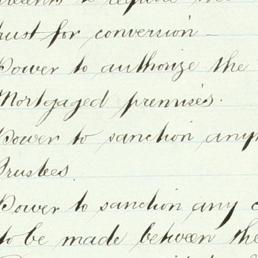 to require
trust for conversion —
Power to authorize the
Mortgaged premises.
Power to sanction any
Trustees.
Power to sanction any
to be made between the